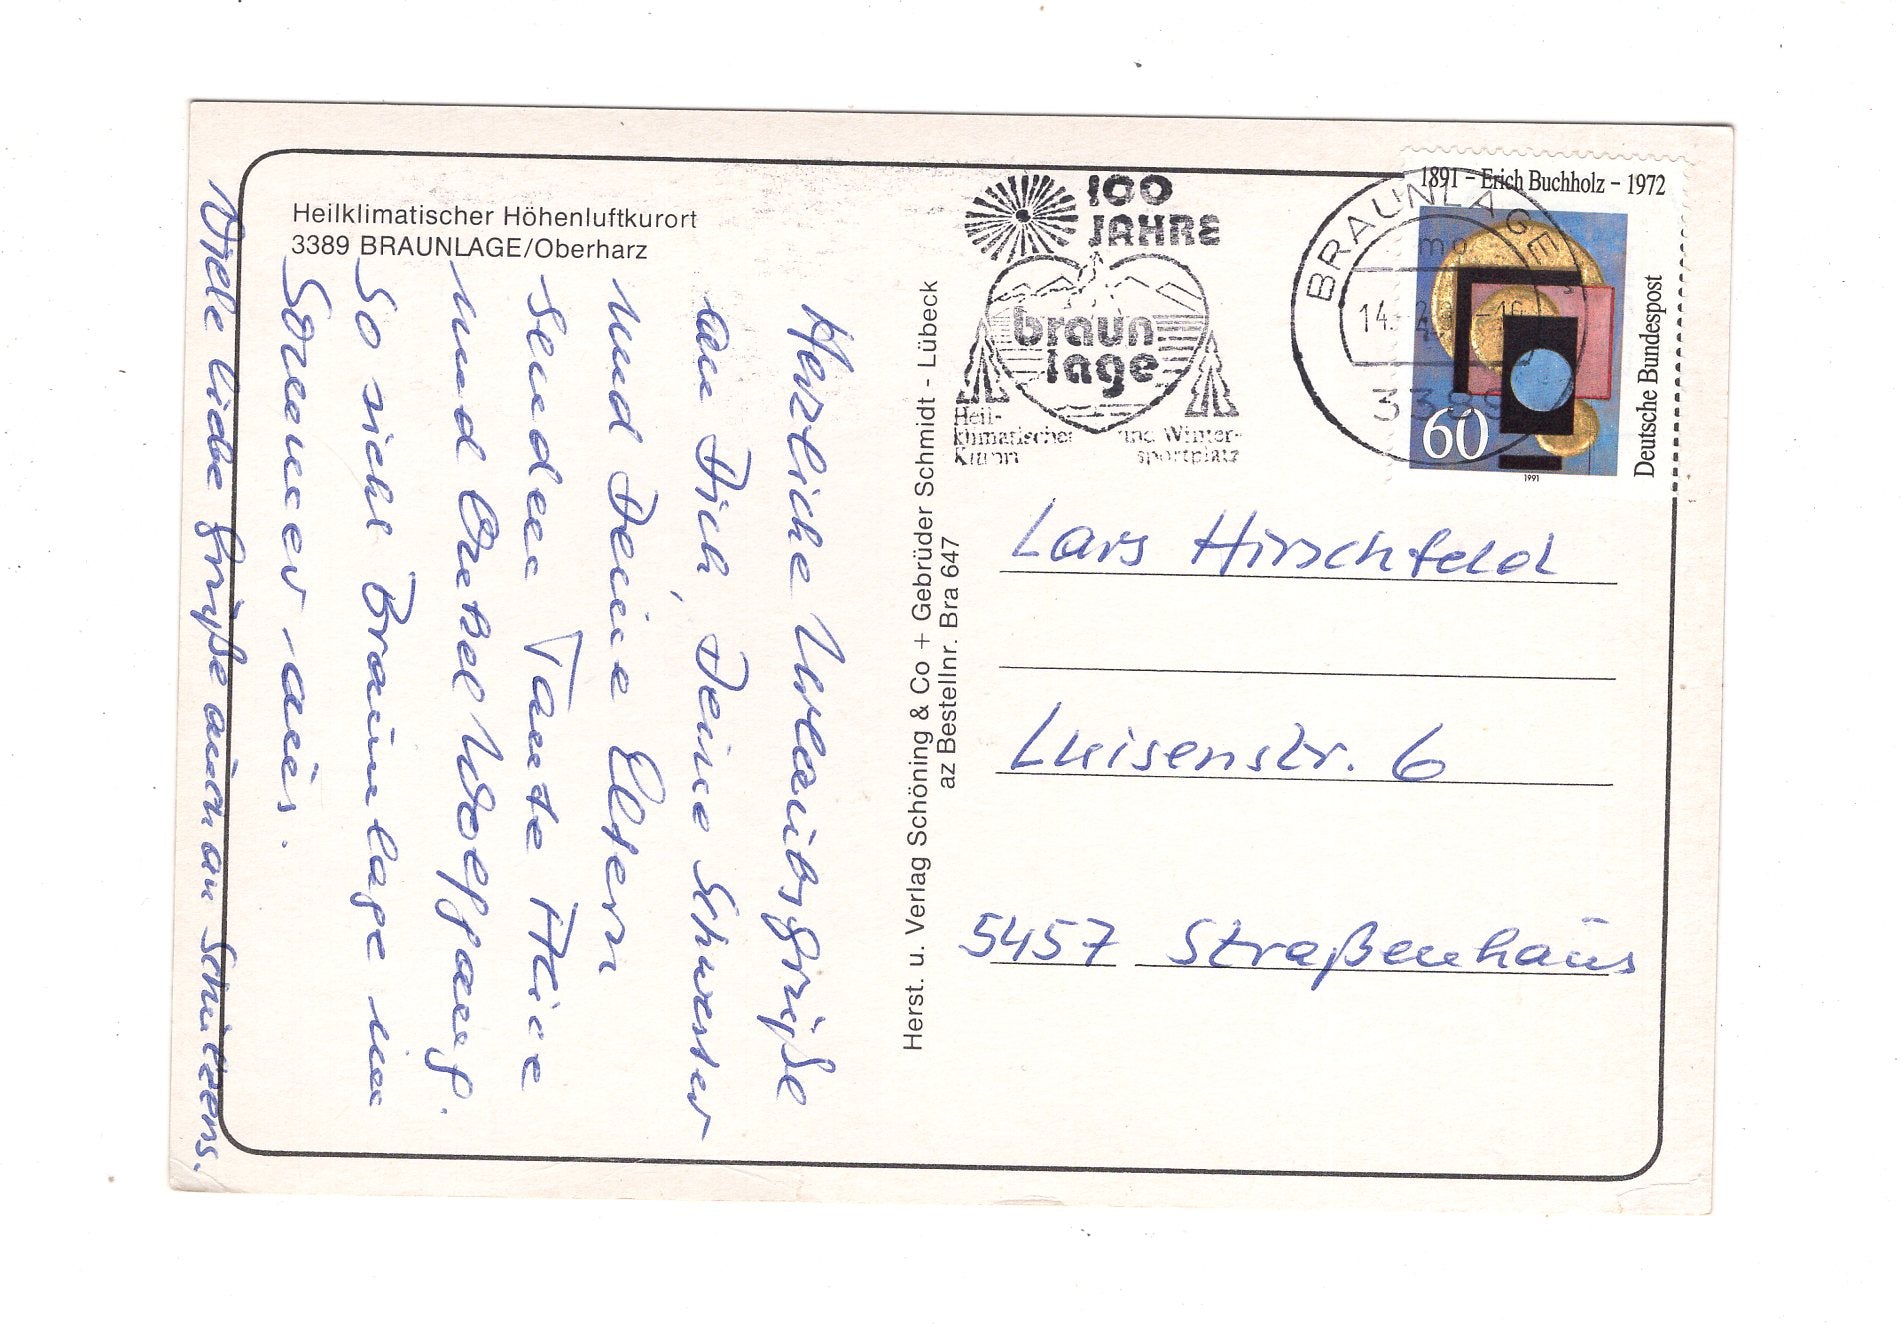 Heilklimatischer Höhenluftkurort
3389 BRAUNLAGE/Oberharz
Herzliche Urlaubsgrüße
an Dich, Deine Schwester
und Deine Eltern
senden Tante
und Onkel Wolfgang.
So sieht Braunlage im
Sommer aus.
Viele liebe Grüße auch an
Herst. u. Verlag Schöning & Co + Gebrüder Schmidt - Lübeck
az Bestellnr. Bra 647
100
JAHRE
braun
lage
Heil-
klimatischer und Winter-
sportplatz
BRAUNLAGE
mo
14.
3389
1891 – Erich Buchholz – 1972
60
1991
Deutsche Bundespost
Lars Hirschfeld
Luisenstr. 6
5457 Straßenhaus